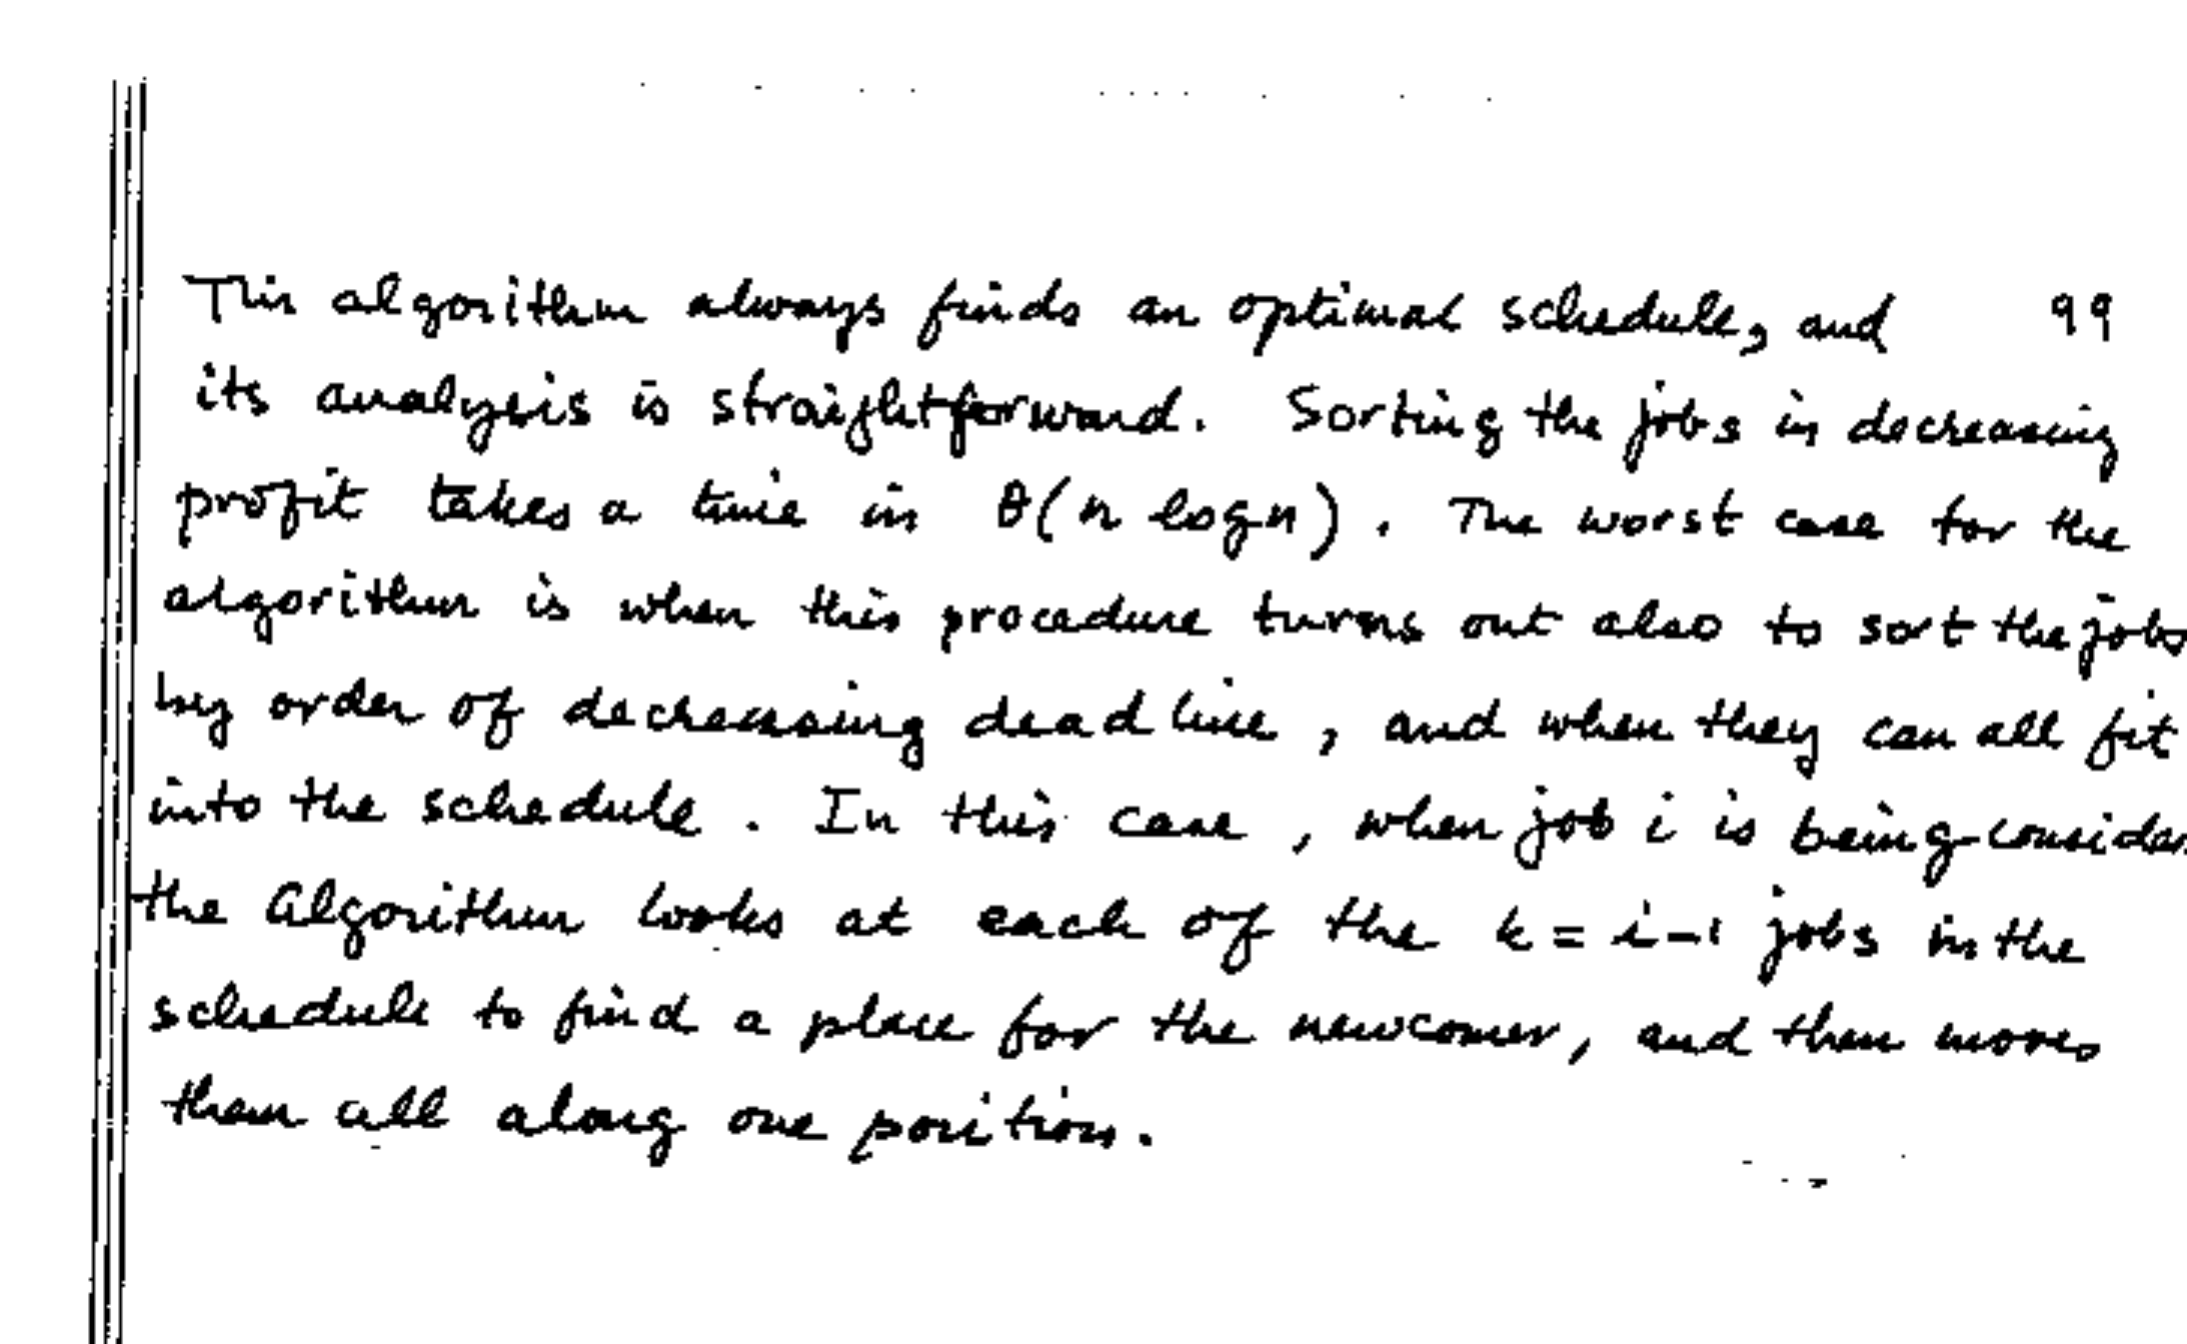 This algorithm always finds an optimal schedule, and 99
its analysis is straightforward. Sorting the jobs in decreasing
profit takes a time in θ(n log n). The worst case for the
algorithm is when this procedure turns out also to sort the jobs
by order of decreasing deadline, and when they can all fit
into the schedule. In this case, when job i is being consider
the Algorithm looks at each of the k = i-1 jobs in the
schedule to find a place for the newcomer, and then moves
them all along one position.